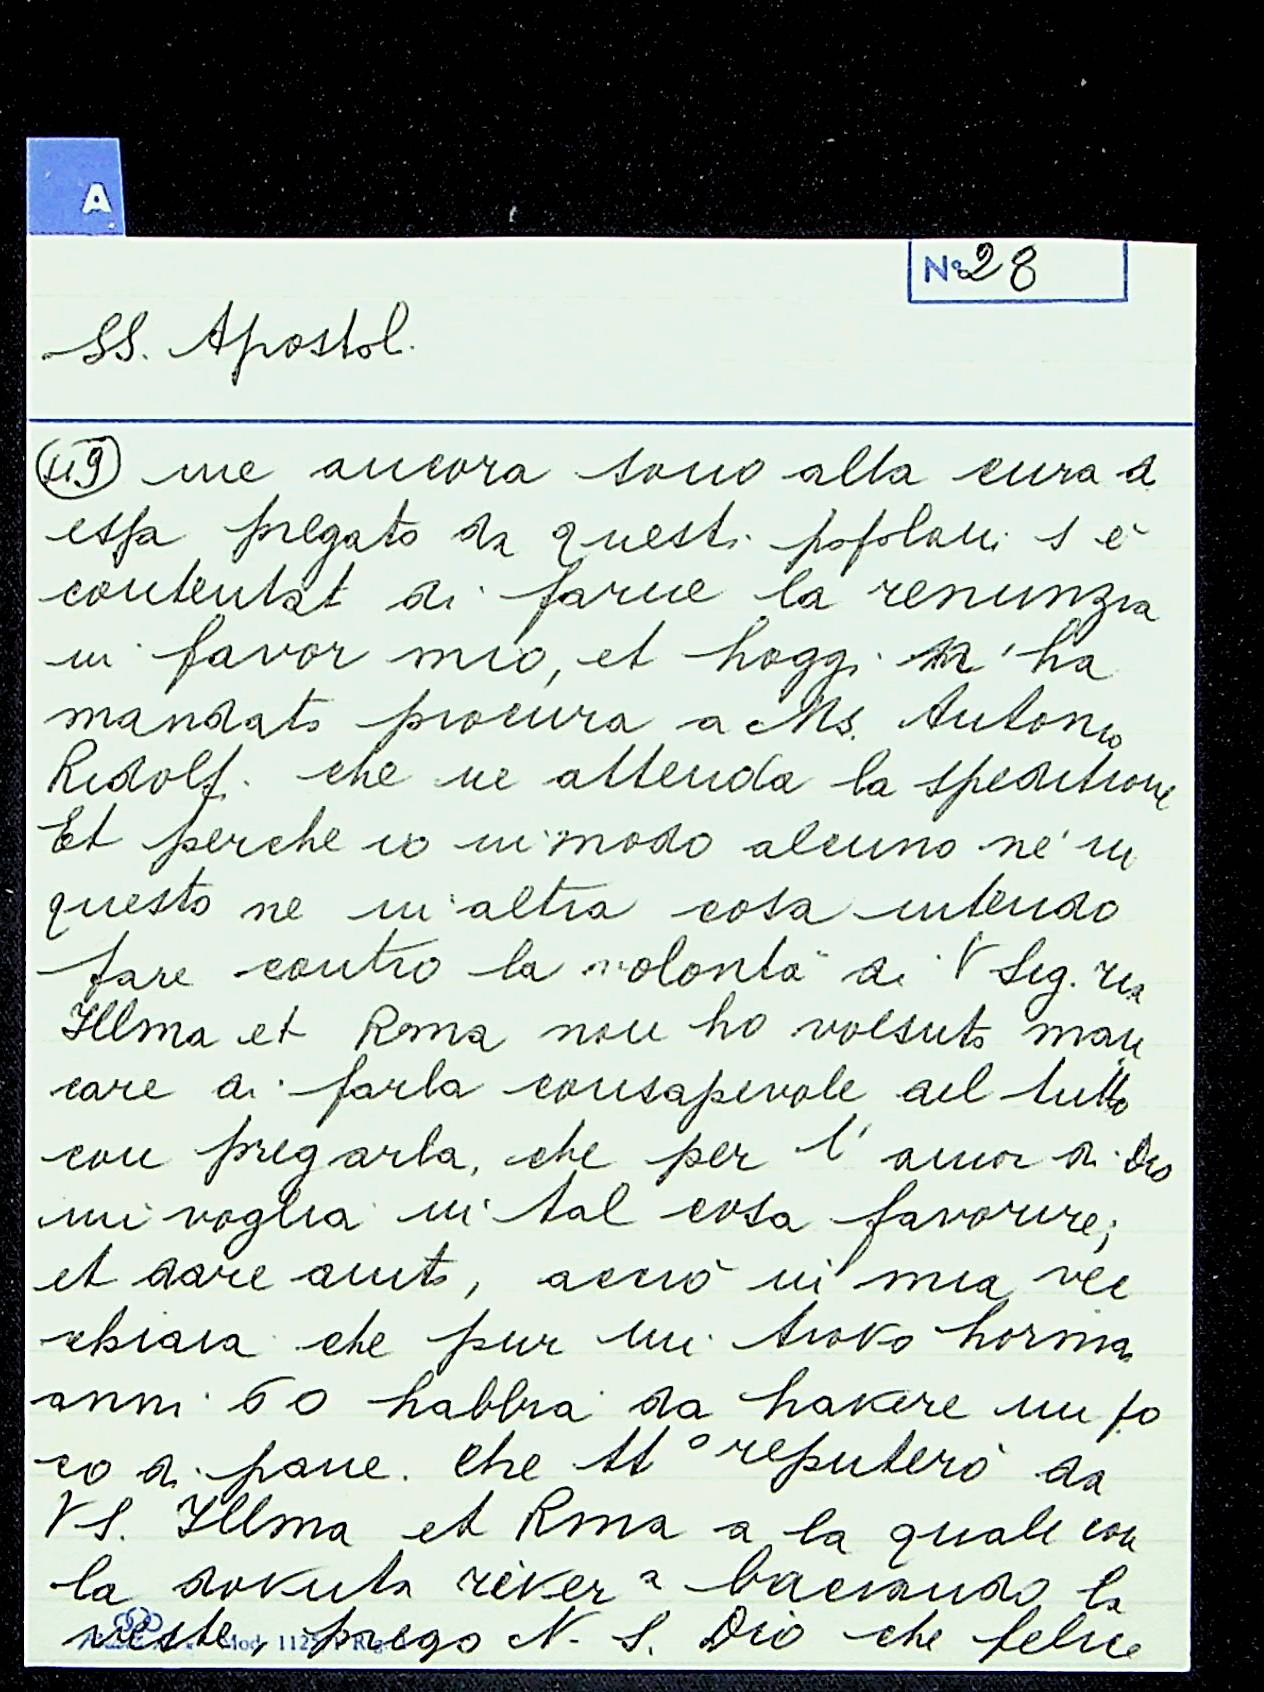 A
N° 28
SS. Apostol.
me ancora sono alla cura d
essa pregato da questi popolani s è
contentat di farne la renunzia
in favor mio, et hoggi n'ha
mandato procura a Ms. Antonio
Ridolf. che ne attenda la speditione
Et perche io in modo alcuno né in
questo ne in altra cosa intendo
fare contro la volontà di V Sig. ria
Illma et Rma non ho volsuto man
care di farla consapevole del tutto
con pregarla, che per l'amor di Dio
mi voglia in tal cosa favorire;
et dare aiuto, acciò in mia vec
chiaia che pur mi trovo horma
anni 60 habbia da havere un po
co di pane. Che tt° reputerò da
VS. Illma et Rma a la quale con
la dovuta river a baciando la
veste, prego N. S. Dio che felice